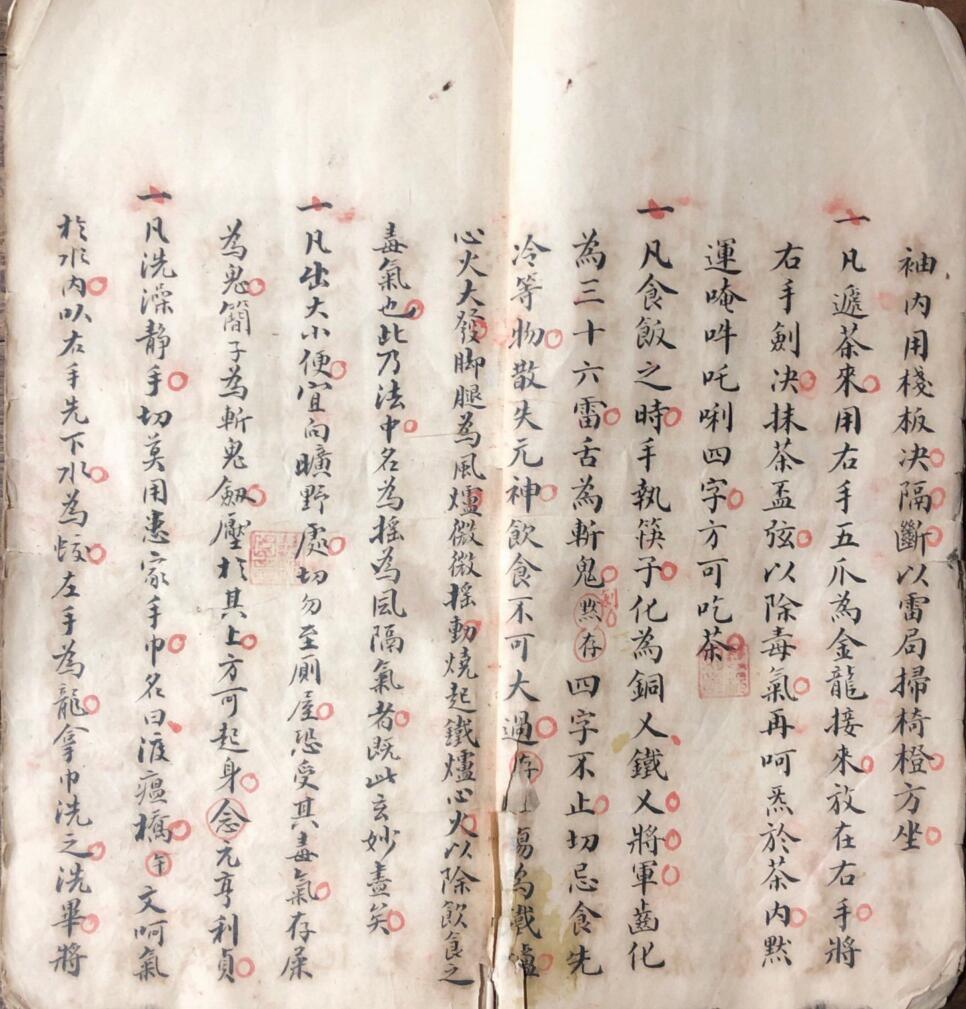 袖內用棧板决隔斷以雷局掃椅橙方坐
一凡遞茶來用右手五爪為金龍接來放在右手將
右手劍决抹茶盃弦以除毒氣再呵炁於茶內黙
運唵吽吒唎四字方可吃茶
一凡食飯之時手執筷子化為銅乂鐵乂將軍齒化
為三十六雷舌為斬鬼劍黙存四字不止切忌食先
冷等物散失元神飲食不可大過存 傷為鐵爐
心火大發脚腿為風爐微微摇動燒起鐵爐心火以除飲食之
毒氣也此乃法中名為摇為風隔氣者既此玄妙盡矣
一凡出大小便宜向曠野處切勿至厠屋恐受其毒氣存屎
為鬼簡子為斬鬼劔壓於其上方可起身念元亨利貞
一凡洗澡静手切莫用患家手巾名曰渡瘟橋午文呵氣
於水內以右手先下水為蛟左手為龍拿巾洗之洗畢將